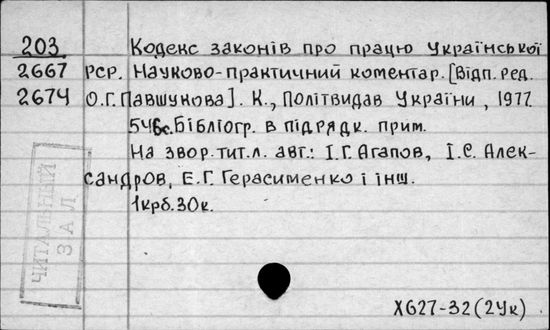 203 Кодекс законів про працю Української
2667 РСР. Науково-практичний коментар. [Відп. ред.
2674 О.Г. Павшукова]. К., Політвидав України, 1977.
546с. Бібліогр. в підрядк. прим.
На звор. тит. л. авт.: І.Г. Агапов, І.Є. Алек-
сандров, Е.Г. Герасименко і інш.
1крб. 30к.
ЧИТАЛЬНЫЙ
ЗАЛ
Х627-32(2Ук)